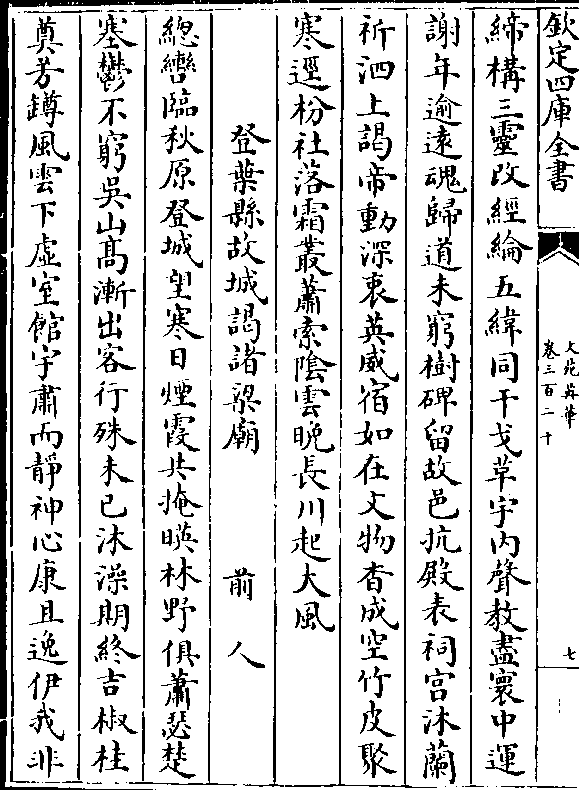 欽定四庫全書
文苑英華
卷三百二十
七
締構三靈改經綸五緯同干戈草宇内聲教盡寰中運
謝年逾遠魂歸道未窮樹碑留故邑抗殿表祠宫沐蘭
祈泗上謁帝動深衷英威宿如在文物杳成空竹皮聚
寒逕枌社落霜叢蕭索陰雲晚長川起大風
登葉縣故城謁諸梁廟
前人
總轡臨秋原登城望寒日煙霞共掩暎林野俱蕭瑟楚
塞鬱不窮吳山高漸出客行殊未已沐澡期終吉椒桂
奠芳罇風雲下虚室館宇肅而靜神心康且逸伊我非